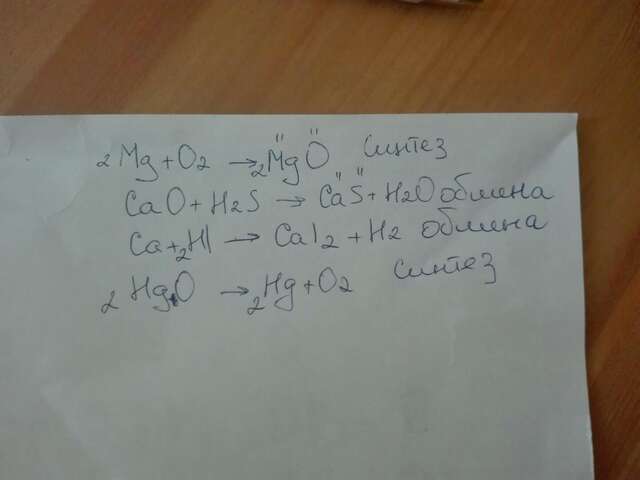 2Mg + O2 → 2MgO синтез
CaO + H2S → CaS + H2O обмена
Ca + 2HI → CaI2 + H2 обмена
2HgO → 2Hg + O2 синтез